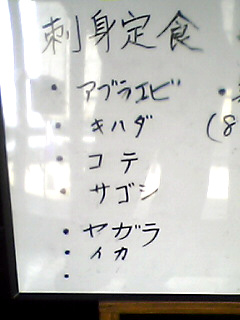 刺身定食
・アブラエビ
・キハダ
・コテ
・サゴシ
・ヤガラ
・イカ
・
(8